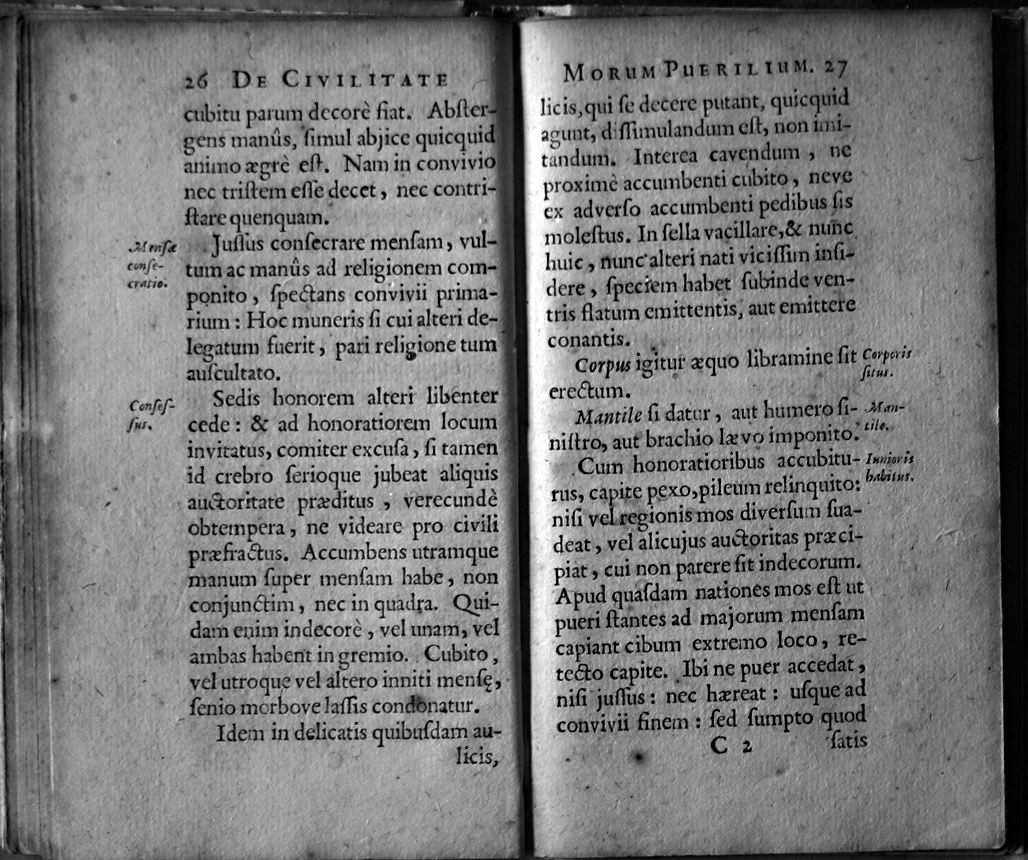 26 DE CIVILITATE
cubitu parum decorè fiat. Abſter-
gens manûs, ſimul abjice quicquid
animo ægrè eſt. Nam in convivio
nec triſtem eſſe decet, nec contri-
ſtare quenquam.
Menſæ
conſe-
cratio.
Juſſus conſecrare menſam, vul-
tum ac manûs ad religionem com-
ponito, ſpectans convivii prima-
rium: Hoc muneris ſi cui alteri de-
legatum fuerit, pari religione tum
auſcultato.
Conſeſ-
ſus.
Sedis honorem alteri libenter
cede: & ad honoratiorem locum
invitatus, comiter excuſa, ſi tamen
id crebro ſerioque jubeat aliquis
auctoritate præditus, verecundè
obtempera, ne videare pro civili
præfractus. Accumbens utramque
manum ſuper menſam habe, non
conjunctim, nec in quadra. Qui-
dam enim indecorè, vel unam, vel
ambas habent in gremio. Cubito,
vel utroque vel altero inniti menſę,
ſenio morbove laſſis condonatur.
Idem in delicatis quibuſdam au-
licis,
MORUM PUERILIUM. 27
licis, qui ſe decere putant, quicquid
agunt, diſſimulandum eſt, non imi-
tandum. Interea cavendum, ne
proximè accumbenti cubito, neve
ex adverſo accumbenti pedibus ſis
moleſtus. In ſella vacillare, & nunc
huic, nunc alteri nati viciſſim inſi-
dere, ſpeciem habet ſubinde ven-
tris flatum emittentis, aut emittere
conantis.
Corpus igitur æquo libramine ſit
erectum.
Corporis
ſitus.
Mantile ſi datur, aut humero ſi-
niſtro, aut brachio lævo imponito.
Man-
tile.
Cum honoratioribus accubitu-
rus, capite pexo, pileum relinquito:
Iunioris
habitus.
niſi vel regionis mos diverſum ſua-
deat, vel alicujus auctoritas præci-
piat, cui non parere ſit indecorum.
Apud quaſdam nationes mos eſt ut
pueri ſtantes ad majorum menſam
capiant cibum extremo loco, re-
tecto capite. Ibi ne puer accedat,
niſi juſſus: nec hæreat: uſque ad
convivii finem: ſed ſumpto quod
C 2 ſatis